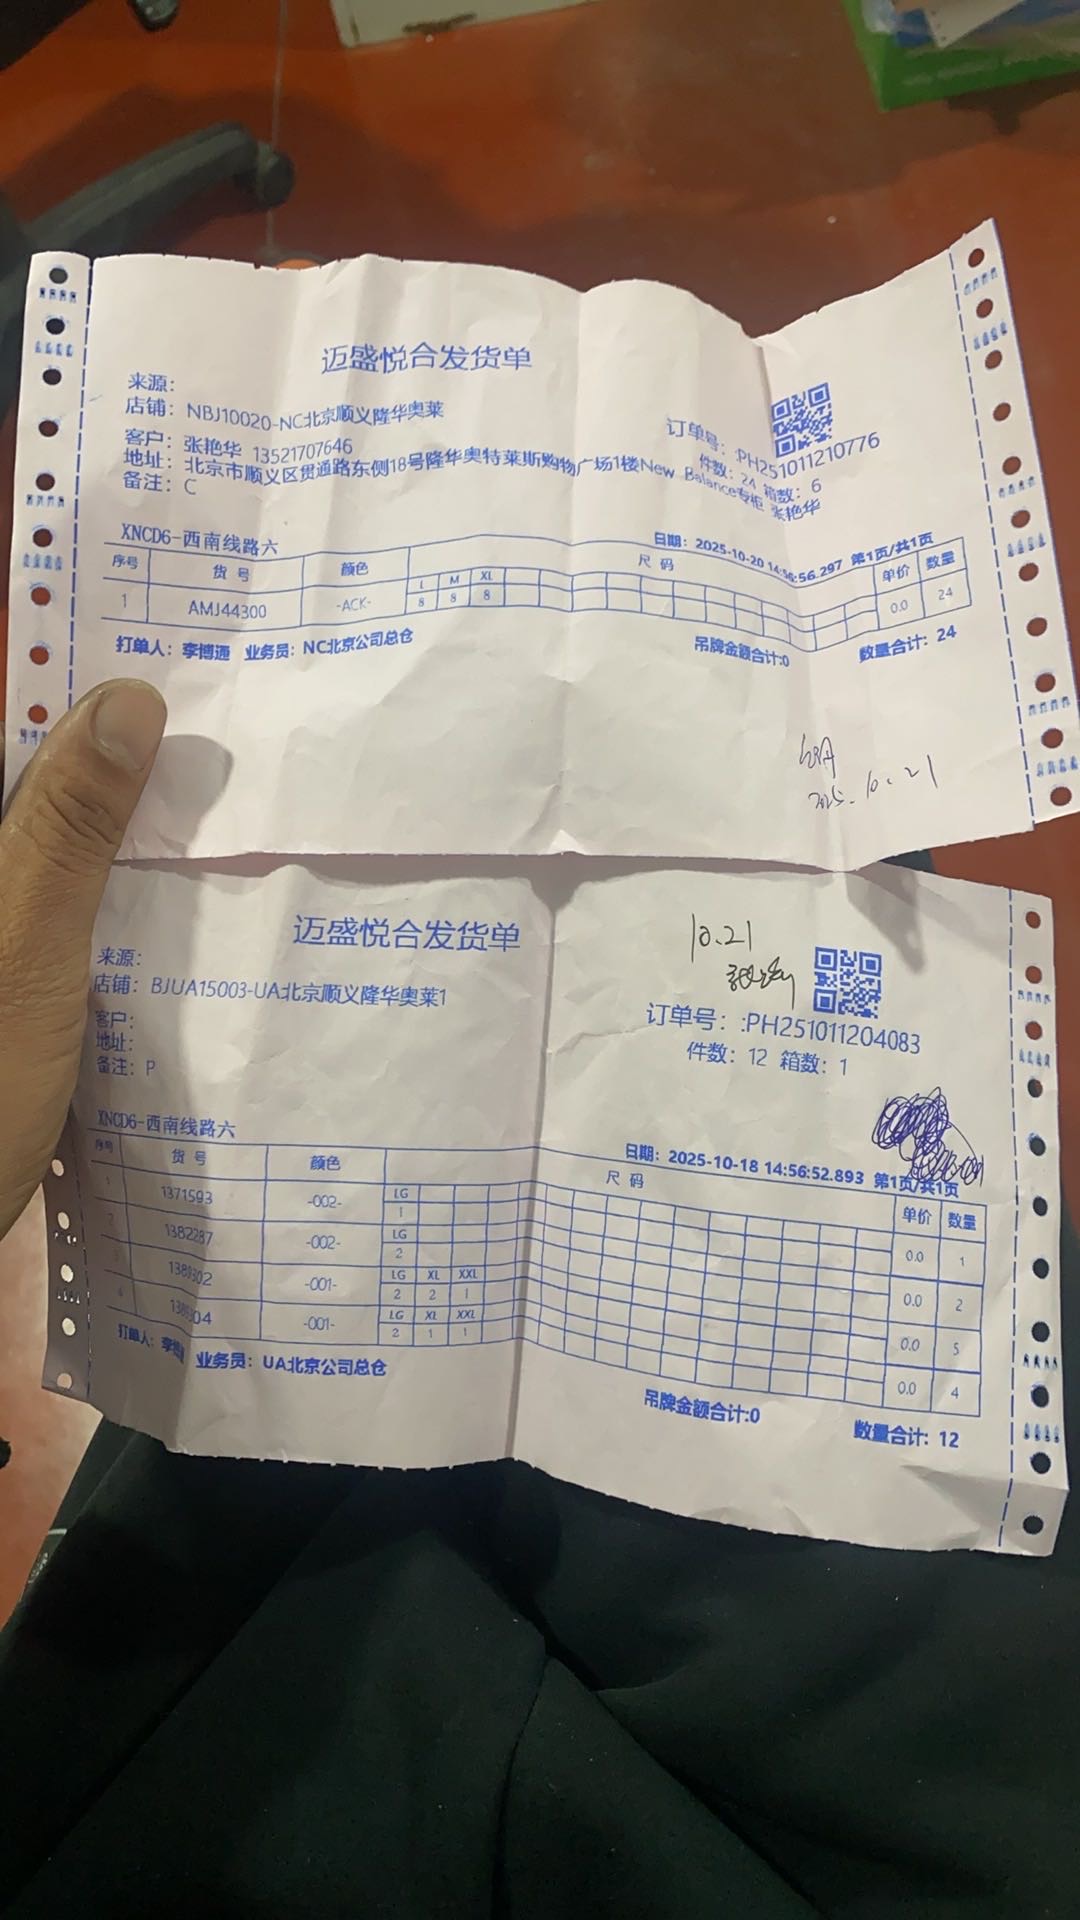 迈盛悦合发货单
来源：
店铺：NBJ10020-NC北京顺义隆华奥莱
订单号：:PH251011210776
客户：张艳华 13521707646
件数：24 箱数：6
地址：北京市顺义区贯通路东侧18号隆华奥特莱斯购物广场1楼New Balance专柜 张艳华
备注：C
XNCD6-西南线路六
日期：2025-10-20 14:56:56.297 第1页/共1页
序号 货号 颜色 尺码 单价 数量
L M XL
1 AMJ44300 -ACK- 8 8 8 0.0 24
打单人：李博通 业务员：NC北京公司总仓 吊牌金额合计:0 数量合计：24
2025.10.21
迈盛悦合发货单
10.21
来源：
店铺：BJUA15003-UA北京顺义隆华奥莱1
订单号：:PH251011204083
客户：
件数：12 箱数：1
地址：
备注：P
XNCD6-西南线路六
日期：2025-10-18 14:56:52.893 第1页/共1页
序号 货号 颜色 尺码 单价 数量
LG
1 1371593 -002- 1 0.0 1
LG
2 1382287 -002- 2 0.0 2
LG XL XXL
3 1389302 -001- 2 2 1 0.0 5
LG XL XXL
4 -001- 2 1 1 0.0 4
打单人：李博 业务员：UA北京公司总仓 吊牌金额合计:0 数量合计：12